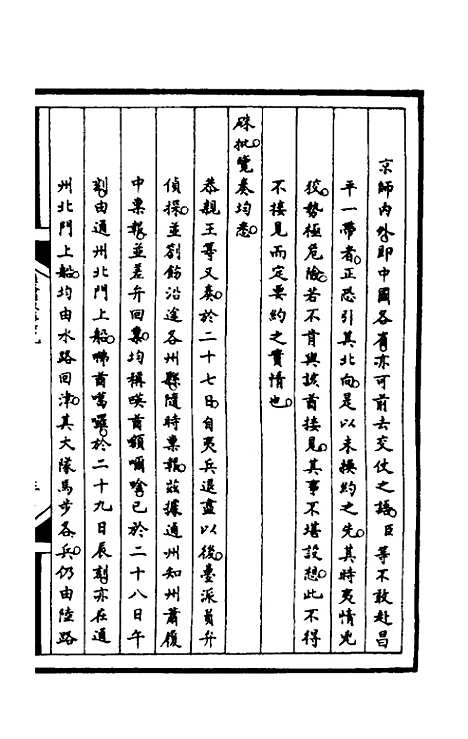 京師內外。即中國各省。亦可前去交仗之語。臣等不敢赴昌
平一帶者。正恐引其北向。是以未換約之先。其時夷情兇
狡。勢極危險。若不肯與該酋接見。其事不堪設想。此不得
不接見而定要約之實情也。
硃批。覽奏均悉。
恭親王等又奏。於二十七日。自夷兵退盡以後。臺派員弁
偵探。並劄飭沿途各州縣。隨時稟報。茲據通州知州蕭履
中稟報。並差弁回稟。均稱㖫酋額嘞唫。已於二十八日午
刻。由通州北門上船。㗖酋噶囉。於二十九日辰刻。亦在通
州北門上船。均由水路回津。其大隊馬步各兵。仍由陸路